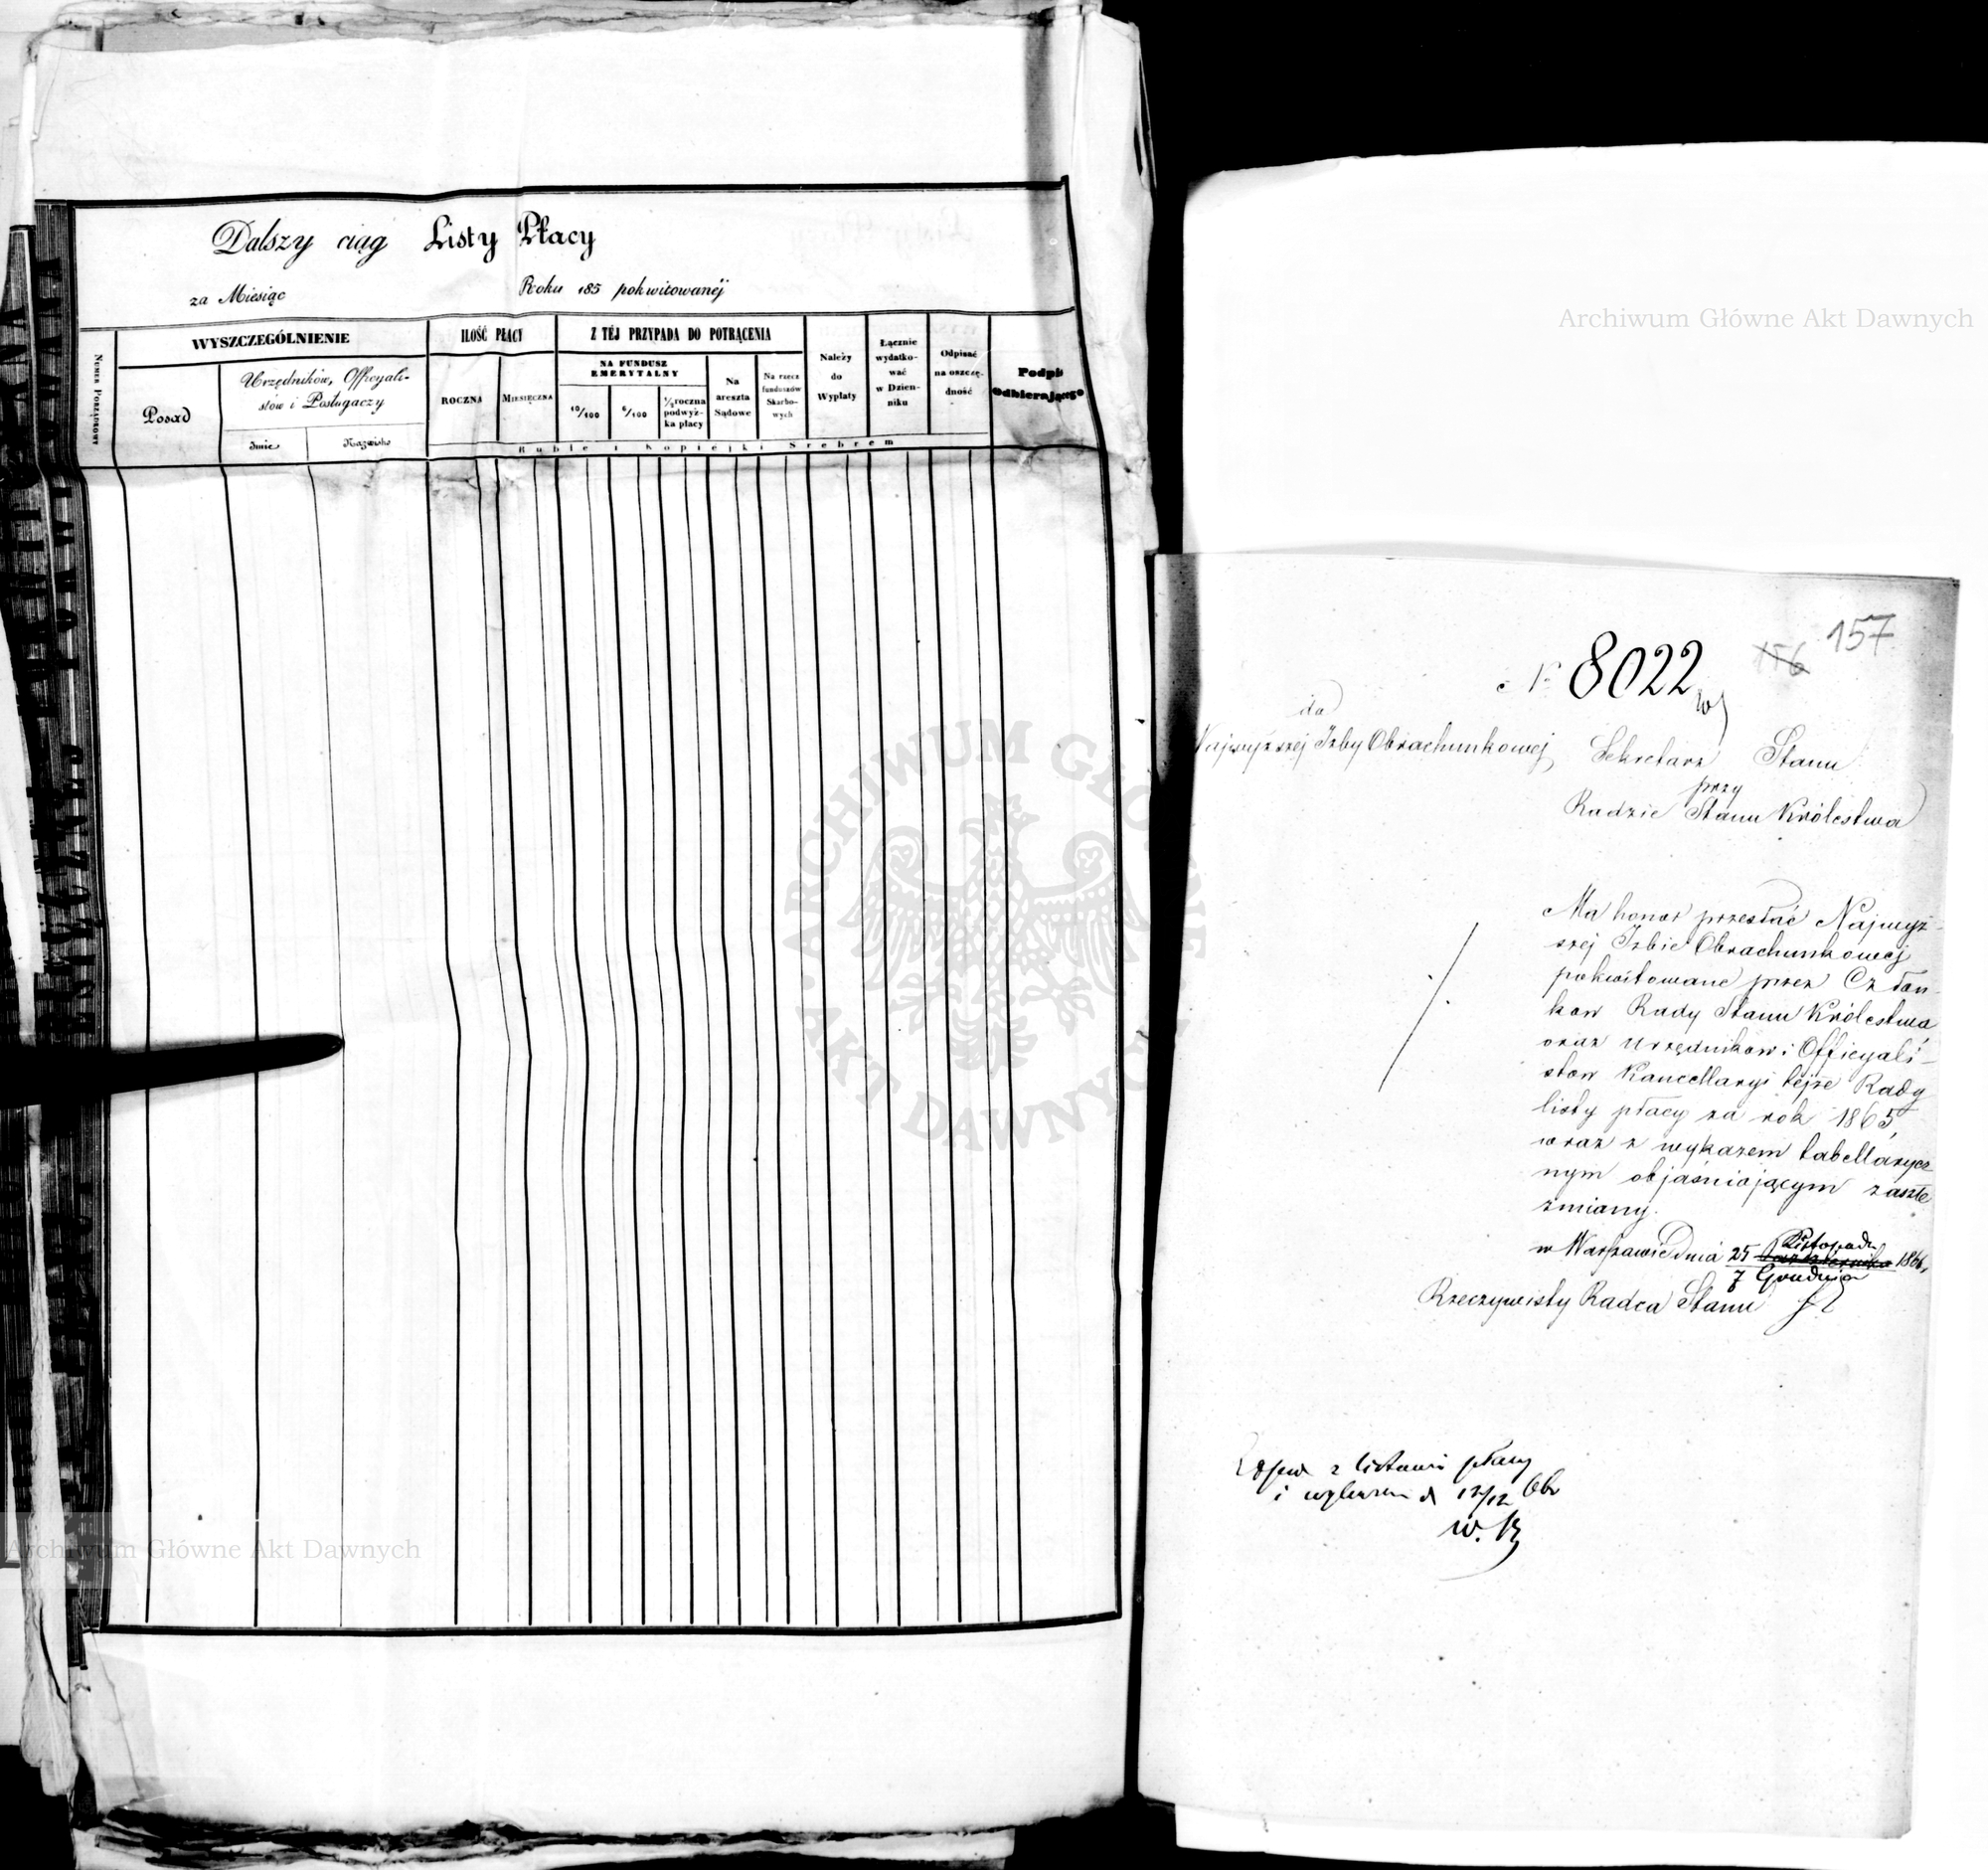 Dalszy ciąg Listy Płacy
za Miesiąc Roku 185 pokwitowanéj
NUMER PORZĄDKOWY
WYSZCZEGÓLNIENIE
Posad
Urzędników, Officyali-
stów i Posługaczy
Imie
Nazwisko
ILOŚĆ PŁACY
ROCZNA
MIESIĘCZNA
Z TÉJ PRZYPADA DO POTRĄCENIA
NA FUNDUSZ
EMERYTALNY
10/100
6/100
½ roczna
podwyż-
ka płacy
Na
areszta
Sądowe
Na rzecz
funduszów
Skarbo-
wych
Należy
do
Wypłaty
Łącznie
wydatko-
wać
w Dzien-
niku
Odpisać
na oszczę-
dność
Podpis
Odbierającego
Ruble i Kopiejki Srebrem
156 157
N 8022
do
Najwyższej Izby Obrachunkowej
Sekretarz Stanu
przy
Radzie Stanu Królestwa
Ma honor przesłać Najwyż-
szej Izbie Obrachunkowej
pokwitowane przez Człon-
kow Rady Stanu Królestwa
oraz urzędnikow i Officyali-
stow Kancellaryi tejże Rady
listy płacy za rok 1865,
wraz z wykazem tabellarycz
nym objaśniającym zaszłe
zmiany.
w Warszawie dnia 25 Listopada
Października 1866,
7 Grudnia
Rzeczywisty Radca Stanu
z listami płacy
i wykazem d 12/12 66
W. K
Archiwum Główne Akt Dawnych
Archiwum Główne Akt Dawnych
ARCHIWUM GŁÓWNE AKT DAWNYCH